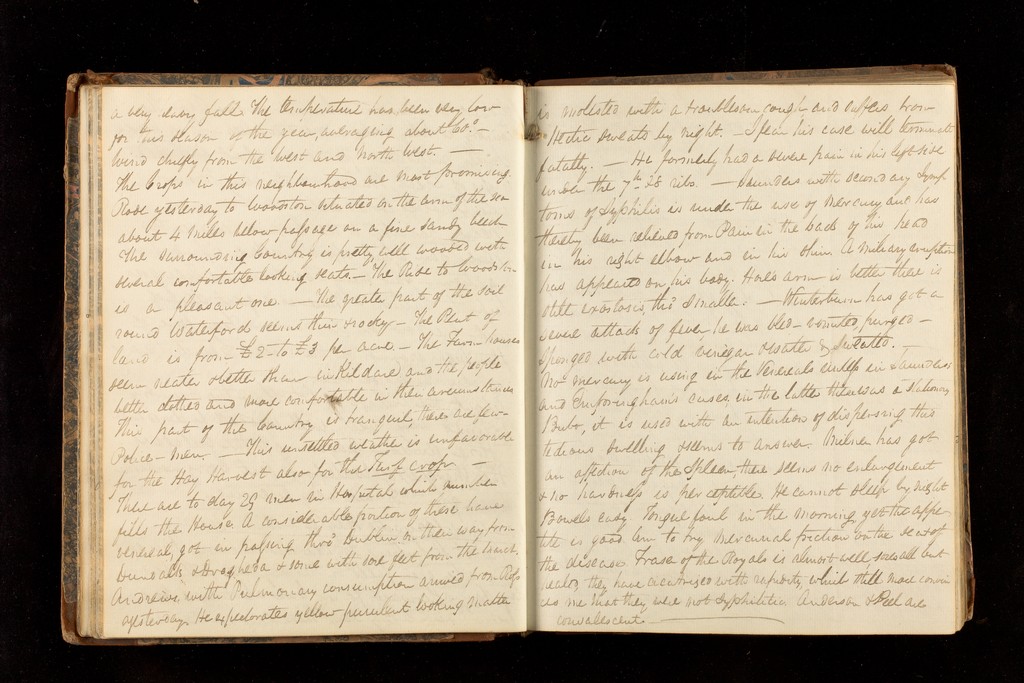 a very heavy fall. The temperature has been very low
for this season of the year, averaging about 60°. —
wind chiefly from the West and North West. —
The Crops in this neighbourhood are most promising.
Rode yesterday to Woodston situated on the arm of the sea
about 4 miles below passage on a fine sandy beach
The surrounding Country is pretty, well wooded with
several comfortable looking seats — The Ride to Woodston
is a pleasant one — The greater part of the soil
round Waterford seems thin & rocky — The Rent of
land is from £2 to £3 per acre — The Farm houses
seem neater & better than in Kildare, and the people
better clothed and more comfortable in their circumstances
This part of the Country is tranquil, there are few
Police-men. — This unsettled weather is unfavorable
for the Hay Harvest also for the Turf crop —
There are to day 29 men in Hospital which number
fills the House. A considerable portion of these have
venereal, got in passing thro' Dublin on their way from
Dundalk & Drogheda & some with sore feet from the march.
Andrews with Pulmonary consumption arrived from Ross
yesterday. He expectorates yellow purulent looking matter
is molested with a troublesome cough and suffers from
Hectic sweats by night. — I fear his case will terminate
fatally. — He formerly had a severe pain in his left side
under the 7th & 8 ribs. — Saunders with secondary symp
toms of Syphilis is under the use of mercury and has
thereby been relieved from Pain in the back of his head
in his right elbow and in his shins. A Miliary eruption
has appeared on his body. Hales arm is better there is
still exostosis, tho' smaller. — Winterburn has got a
severe attack of fever, he was bled — vomited, purged —
Sponged with cold vinegar & water & sweated. —
No mercury is using in the Venereals unless in Saunders
and Cunningham's cases, in the latter there was a stationary
Bubo, it is used with an intention of dispersing this
tedious swelling & seems to answer. Milner has got
an affection of the Spleen, there seems no enlargement
& no hardness is perceptible. He cannot sleep by night
Bowels easy. Tongue foul in the morning yet the appe
tite is good am to try mercurial friction on the seat of
the disease. Fraser of the Royals is almost well, sores all but
healed, they have cicatrised with rapidity which still more convin
ces me that they were not Syphilitic. Anderson & Peel are
convalescent. —